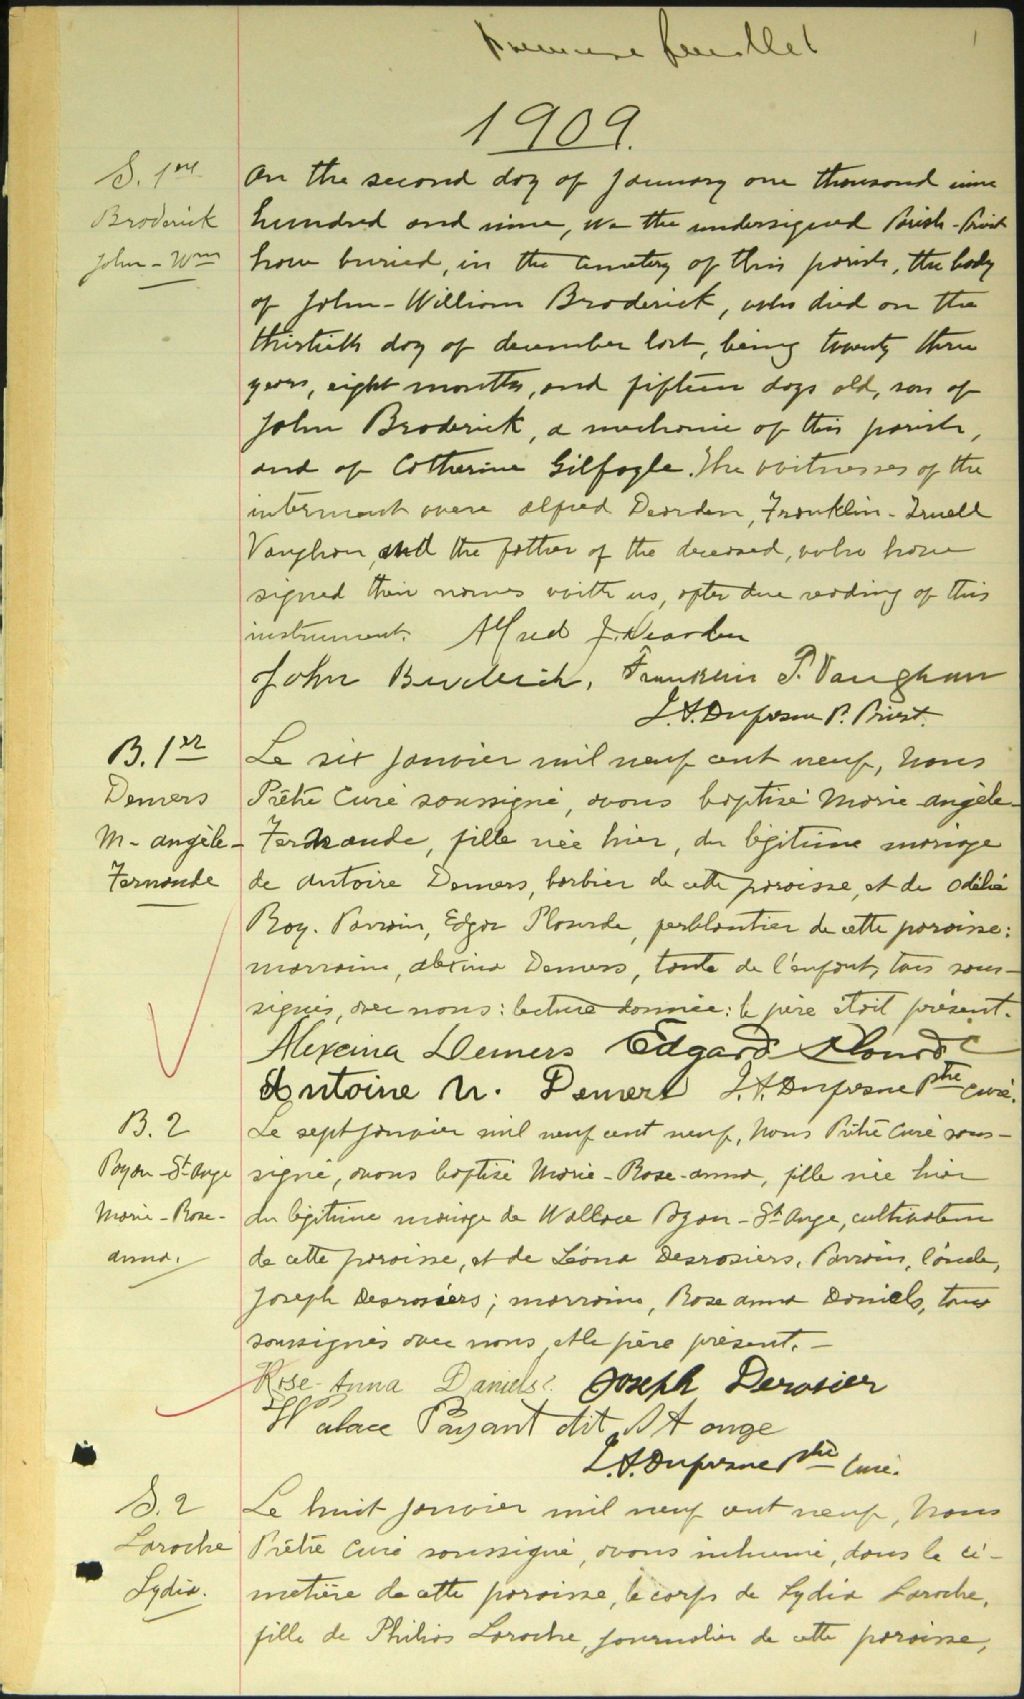 Premier feuillet
1909.
S. 1re
Broderick
John-Wm
On the second day of January one thousand nine
hundred and nine, we the undersigned Parish-Priest
have buried, in the cemetery of this parish, the body
of John-William Broderick, who died on the
thirtieth day of december last, being twenty three
years, eight months, and fifteen days old, son of
John Broderick, a mechanic of this parish,
and of Catherine Gilfogle. The witnesses of the
interment were Alfred Dearden, Franklin-Truell
Vaughan, and the father of the deceased, who have
signed their names with us, after due reading of this
instrument. Alfred J. Dearden
John Broderick, Franklin T. Vaughan
J.A. Dufresne P. Priest.
B. 1er
Demers
M-angèle-
Fernande
Le six janvier mil neuf cent neuf, Nous
Prêtre Curé soussigné, avons baptisé Marie-angèle-
Fernande, fille née hier, du légitime mariage
de Antoire Demers, barbier de cette paroisse, et de Odélie
Roy. Parrain, Edgar Plourde, ferblantier de cette paroisse:
marraine, alexina Demers, tante de l'enfant, tous sous-
signés, avec nous: lecture donnée: le père était présent.
Alexcina Demers Edgard Plourde
Antoine N. Demers J.A. Dufresne Ptre Curé.
B. 2
Payan-St-Ange
Marie-Rose-
anna.
Le sept janvier mil neuf cent neuf, Nous Prêtre Curé sous-
signé, avons baptisé Marie-Rose-anna, fille née hier
du légitime mariage de Wallace Payan-St-Ange, cultivateur
de cette paroisse, et de Léona Desrosiers. Parrain, l'oncle,
Joseph Desrosiers; marraine, Rose anna Daniels, tous
soussignés avec nous, et le père présent.-
Rose-Anna Daniels. Joseph Derosier
Walace Payant dit St ange
J.A. Dufresne Ptre Curé.
S. 2
Laroche
Lydia.
Le huit janvier mil neuf cent neuf, Nous
Prêtre Curé soussigné, avons inhumé, dans le ci-
metière de cette paroisse, le corps de Lydia Laroche,
fille de Philias Laroche, journalier de cette paroisse,